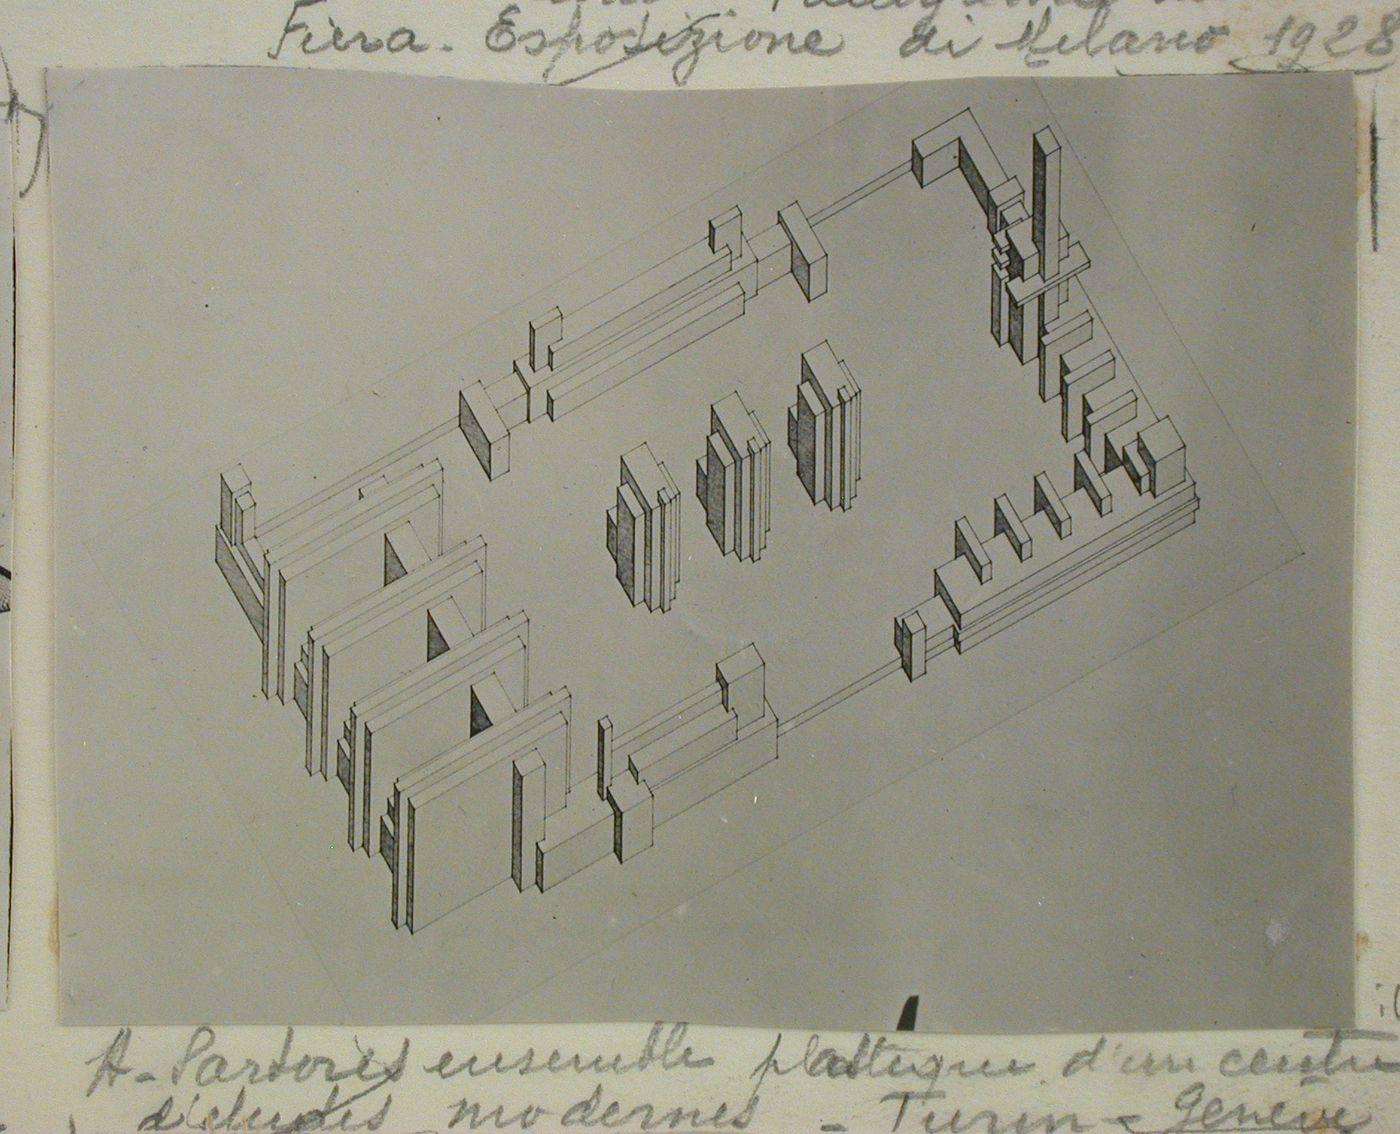 Fiera - Esposizione di Milano 1928
A - Sartoris ensemble plastique d'un centre
d'études modernes - Turin - Genève